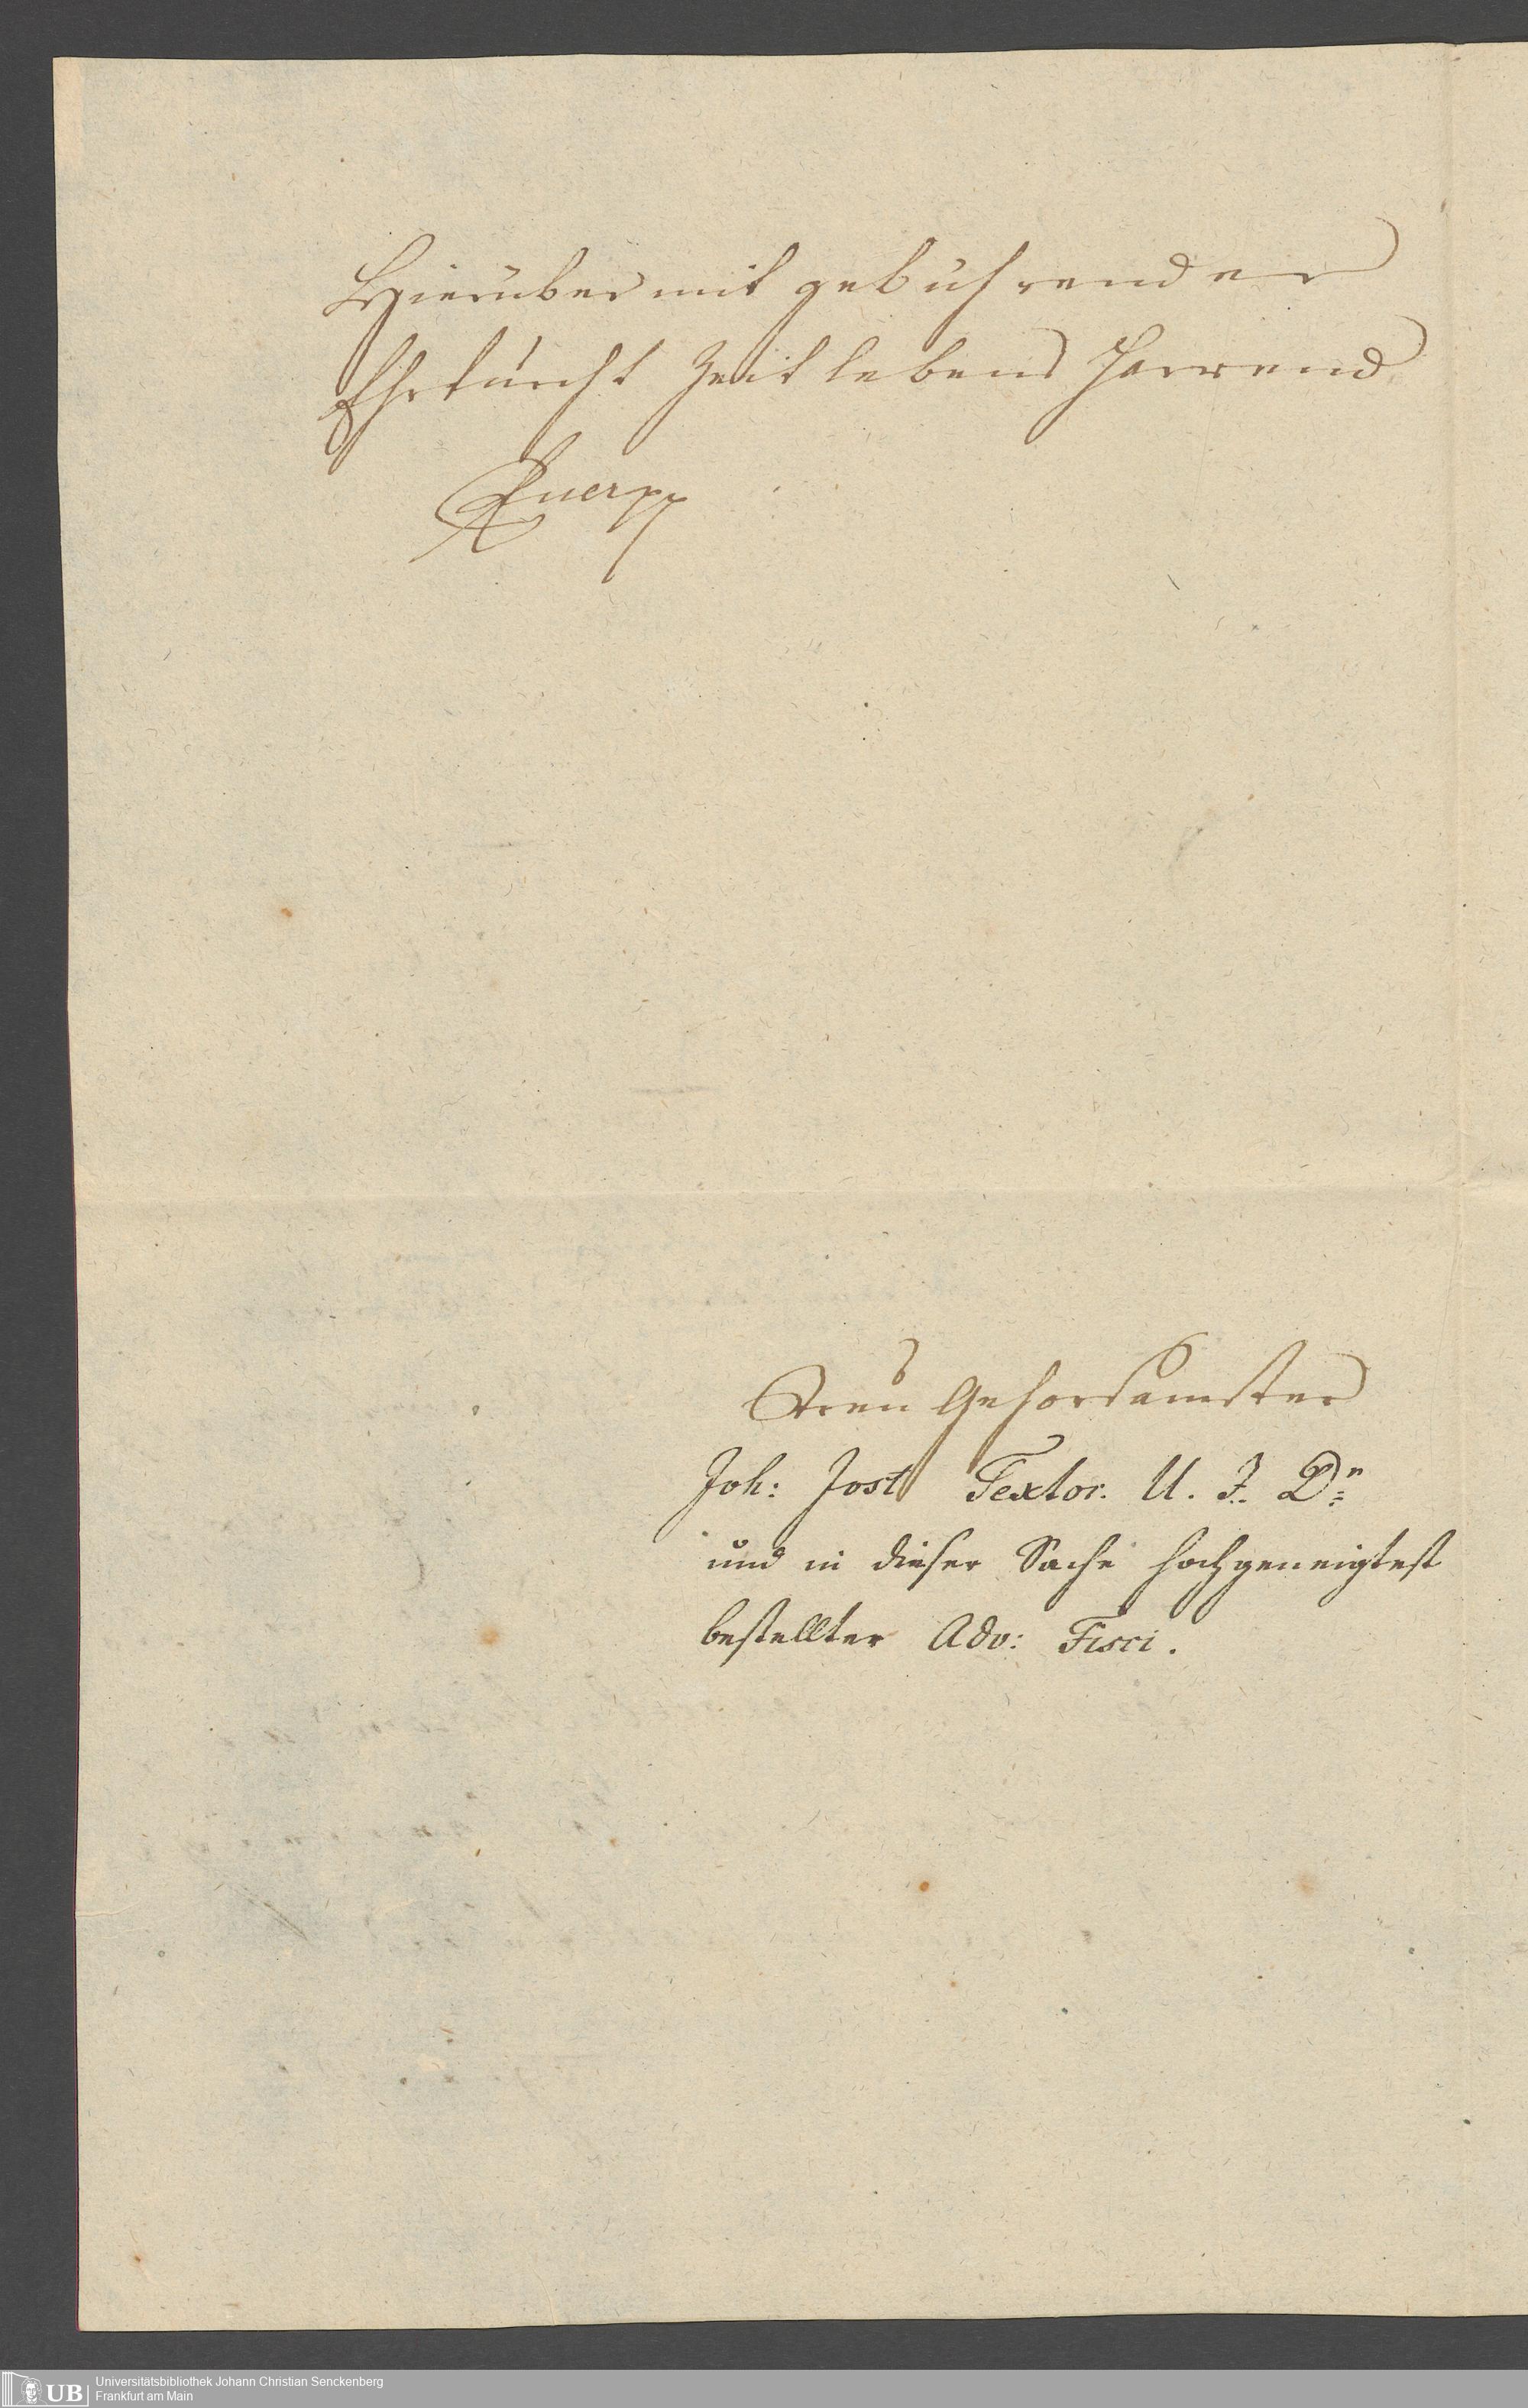 Hierüber mit gebührender
Ehrfurcht Zeit lebens harrend
Euer pp
Treu Gehorsamster
Joh: Jost Textor. U. J. Dr:
und in dieser Sache hochgeneigtest
bestellter Adv: Fisci.
UB
Universitätsbibliothek Johann Christian Senckenberg
Frankfurt am Main